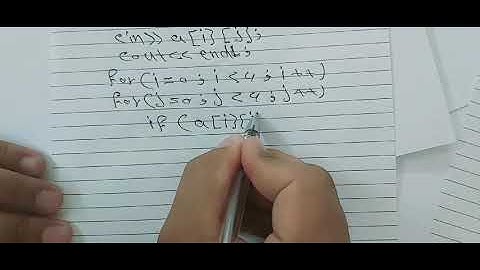 cin>> a[i][j];
cout<< endl;
for(i=0; i<4; i++)
for(j=0; j<4; j++)
if (a[i][j